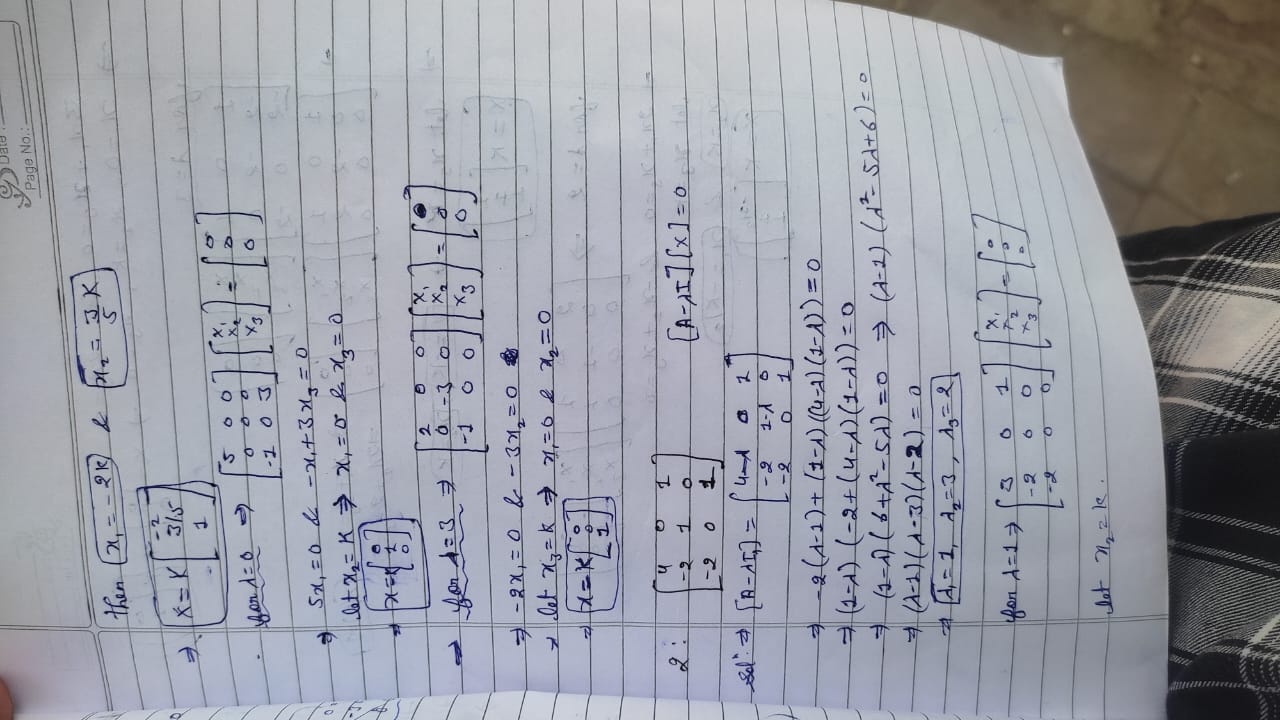 Date :
Page No.:
then x₁ = -2K & x₂ = 3/5 K
⇒ X = K [-2; 3/5; 1]
for λ=0 ⇒ [5 0 0; 0 0 0; -1 0 3] [x₁; x₂; x₃] = [0; 0; 0]
⇒ 5x₁ = 0 & -x₁ + 3x₃ = 0
let x₂ = K ⇒ x₁ = 0 & x₃ = 0
⇒ x = K [0; 1; 0]
⇒ for λ=3 ⇒ [2 0 0; 0 -3 0; -1 0 0] [x₁; x₂; x₃] = [0; 0; 0]
⇒ -2x₁ = 0 & -3x₂ = 0
let x₃ = K ⇒ x₁ = 0 & x₂ = 0
⇒ x = K [0; 0; 1]
2: [4 0 1; -2 1 0; -2 0 1] [A-λI] [X] = 0
Solⁿ: ⇒ [A-λI] = [4-λ 0 1; -2 1-λ 0; -2 0 1]
⇒ -2(λ-1) + (1-λ)((4-λ)(1-λ)) = 0
⇒ (1-λ)(-2+(4-λ)(1-λ)) = 0
⇒ (1-λ)(6+λ²-5λ) = 0 ⇒ (λ-1)(λ²-5λ+6) = 0
⇒ (λ-1)(λ-3)(λ-2) = 0
⇒ λ₁ = 1, λ₂ = 3, λ₃ = 2
for λ=1 ⇒ [3 0 1; -2 0 0; -2 0 0] [x₁; x₂; x₃] = [0; 0; 0]
let x₂ = K.